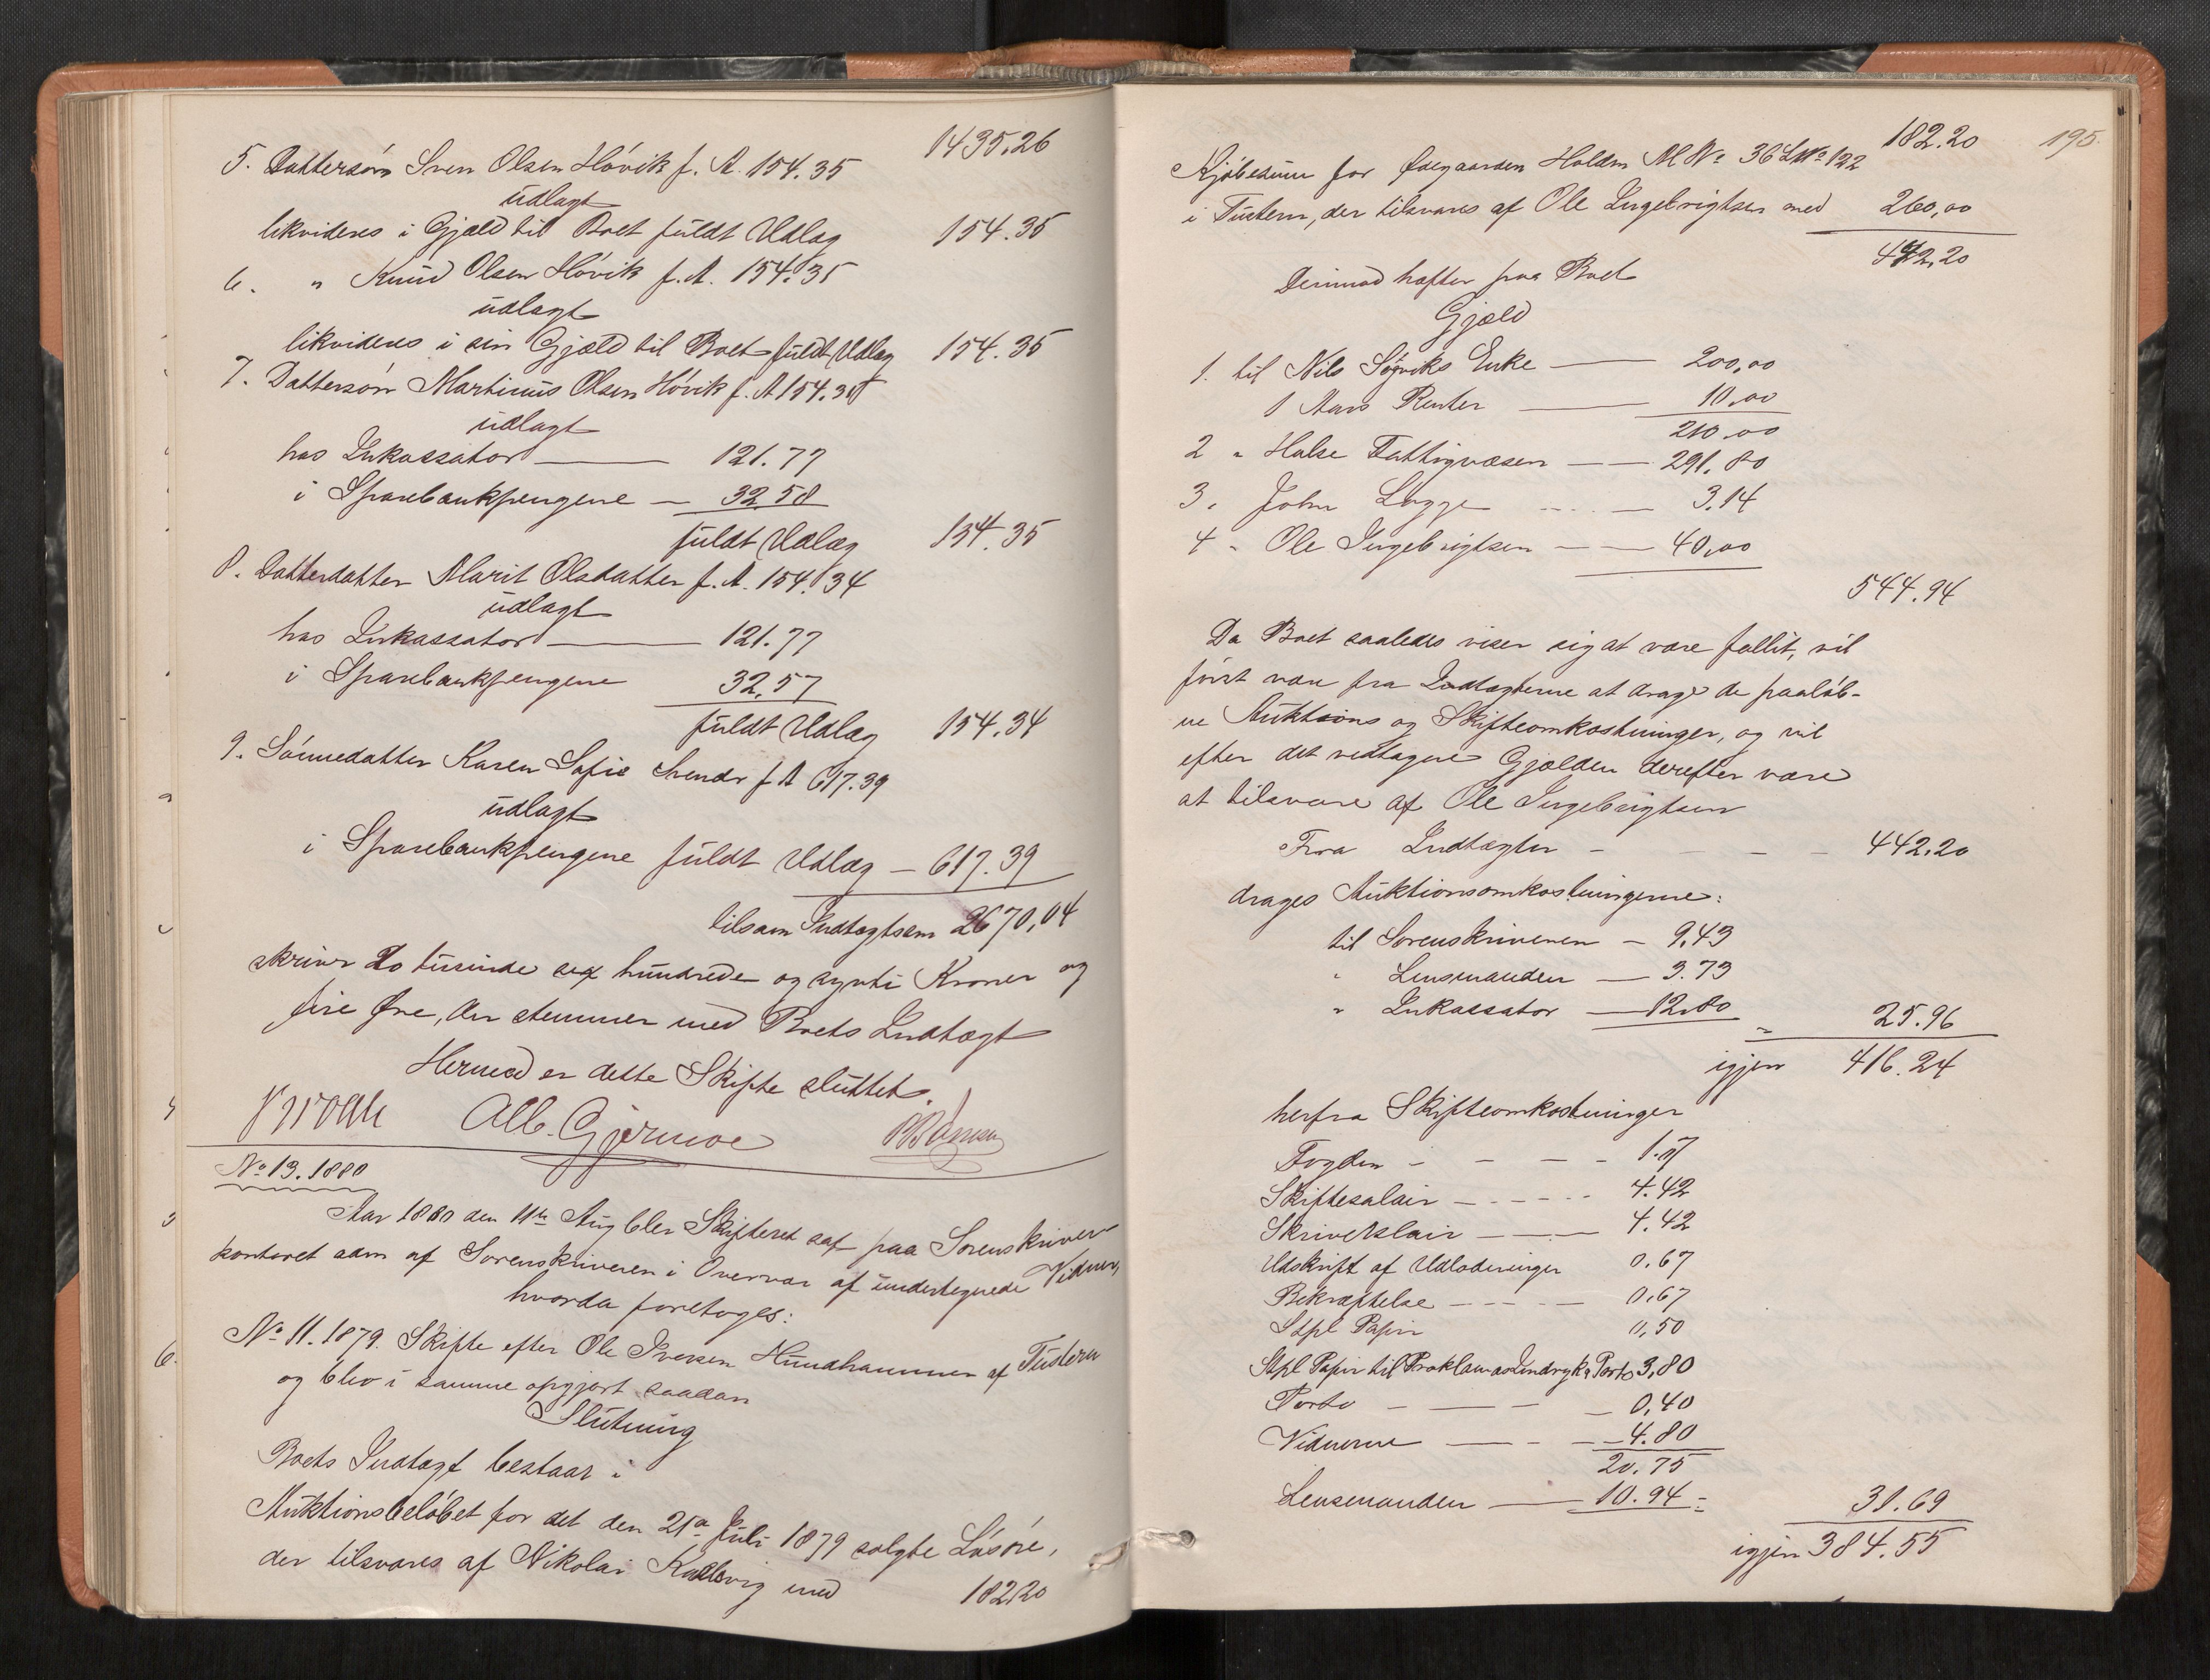 1435.26
5. Dattersøn Sven Olsen Høvik f. A. 154.35
udlagt
likvideres i Gjæld til Boet fuldt Udlæg 154.35
6. " Knud Olsen Høvik f. A. 154.35
udlagt
likvideres i sin Gjæld til Boet fuldt Udlæg 154.35
7. Dattersøn Martinus Olsen Høvik f. A 154.35
udlagt
hos Inkassator — 121.77
i Sparebankpengene — 32.58
fuldt Udlæg 154.35
8. Datterdatter Marit Olsdatter f. A. 154.34
udlagt
hos Inkassator — 121.77
i Sparebankpengene 32.57
fuldt Udlæg 154.34
9. Sønnedatter Karen Sofie Svendr f A 617.39
udlagt
i Sparebankpengene fuldt Udlæg — 617.39
tilsam Indtægtsem 2670,04
skriver to tusinde sex hundrede og sytti Kroner og
fire Øre, der stemmer med Boets Indtægt
Hermed er dette Skifte sluttet.
Alb. Gjørmoe
No 13. 1880
Aar 1880 den 11te Aug blev Skifteret sat paa Sorenskriver
kontoret adm af Sorenskriveren i Overvær af undertegnede Vidner,
hvorda foretoges:
No 11. 1879. Skifte efter Ole Iversen Hundhammer af Tustern
og blev i samme opgjort saadan
Slutning
Boets Indtægt bestaar i
Auktionsbeløbet for det den 21de Juli 1879 solgte Løsøre,
der tilsvares af Nikolai Kaldsvig med 182.20
195.
182.20
Kjøbesum for Ødegaarden Holdm M No 36 L No 122
i Tustern, der tilsvares af Ole Ingebrigtsen med 260,00
442,20
Derimod hæfter paa Boet
Gjæld
1. til Nils Søgviks Enke — 200,00
1 Aars Renter — 10.00
210.00
2 " Halse Fattigvæsen — 291.80
3. John Lagge — 3.14
4 " Ole Ingebrigtsen — 40,00
544.94
Da Boet saaledes viser sig at være fallit, vil
først være fra Indtægterne at drage de paaløb-
ne Auktions og Skifteomkostninger, og vil
efter det vedtagne Gjælden derefter være
at tilsvare af Ole Ingebrigtsen
Fra Indtægten — 442.20
drages Auktionsomkostningerne:
til Sorenskriveren — 9.43
" Lensmanden — 3.73
" Inkassator — 12.80
= 25.96
igjen 416.24
herfra Skifteomkostninger
Fogden — 1.07
Skiftesalair — 4.42
Skriversalair — 4.42
Udskrift af Udlodninger 0.67
Bekræftelse — 0.67
Stpl Papir 0,50
Stpl Papir til Proklama Indryk & Porto 3,80
Porto — 0,40
Vidnerne — 4.80
20.75
Lensmanden — 10.94 = 31.69
igjen 384.55